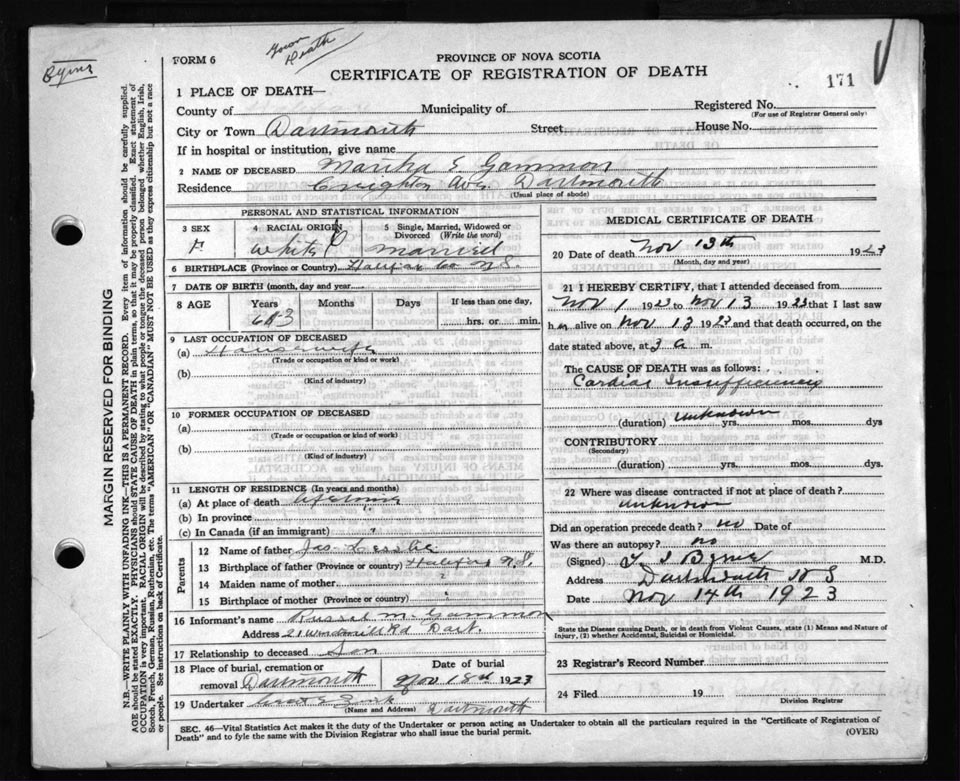 Byrne
Town
Death
FORM 6
PROVINCE OF NOVA SCOTIA
CERTIFICATE OF REGISTRATION OF DEATH
171
1 PLACE OF DEATH—
County of Halifax Municipality of Registered No.
(For use of Registrar General only)
City or Town Dartmouth Street House No.
If in hospital or institution, give name
2 NAME OF DECEASED Martha E Gammon
Residence Creighton Ave. Dartmouth
(Usual place of abode)
PERSONAL AND STATISTICAL INFORMATION
3 SEX 4 RACIAL ORIGIN 5 Single, Married, Widowed or Divorced (Write the word)
F White married
6 BIRTHPLACE (Province or Country) Halifax Co N.S.
7 DATE OF BIRTH (month, day and year)
8 AGE Years Months Days If less than one day,
hrs. or min.
9 LAST OCCUPATION OF DECEASED
(a) Housewife
(Trade or occupation or kind or work)
(b)
(Kind of industry)
10 FORMER OCCUPATION OF DECEASED
(a)
(Trade or occupation or kind of work)
(b)
(Kind of industry)
11 LENGTH OF RESIDENCE (In years and months)
(a) At place of death
(b) In province
(c) In Canada (if an immigrant)
Parents
12 Name of father Jas. Leslie
13 Birthplace of father (Province or country) Halifax N.S.
14 Maiden name of mother
15 Birthplace of mother (Province or country)
16 Informant's name Russel M. Gammon
Address 21 Windmill Rd Dart.
17 Relationship to deceased Son
18 Place of burial, cremation or removal Dartmouth Date of burial Nov 18th 1923
19 Undertaker Dartmouth
(Name and Address)
MEDICAL CERTIFICATE OF DEATH
20 Date of death Nov 13th 1923
(Month, day and year)
21 I HEREBY CERTIFY, that I attended deceased from
Nov 1 1923 to Nov 13 1923 that I last saw
h alive on Nov 13 1923 and that death occurred, on the
date stated above, at 3 a. m.
The CAUSE OF DEATH was as follows:
Cardiac Insufficiency
unknown
(duration) yrs. mos. dys
CONTRIBUTORY
(Secondary)
(duration) yrs. mos. dys.
22 Where was disease contracted if not at place of death?
unknown
Did an operation precede death? no Date of
Was there an autopsy? no
(Signed) Byrne M.D.
Address Dartmouth N S
Date Nov 14th 1923
State the Disease causing Death, or in death from Violent Causes, state (1) Means and Nature of
Injury, (2) whether Accidental, Suicidal or Homicidal.
23 Registrar's Record Number
24 Filed 19
Division Registrar
SEC. 46—Vital Statistics Act makes it the duty of the Undertaker or person acting as Undertaker to obtain all the particulars required in the "Certificate of Registration of
Death" and to fyle the same with the Division Registrar who shall issue the burial permit.
(OVER)
MARGIN RESERVED FOR BINDING
N.B.—WRITE PLAINLY WITH UNFADING INK—THIS IS A PERMANENT RECORD. Every item of information should be carefully supplied.
AGE should be stated EXACTLY. PHYSICIANS should STATE CAUSE OF DEATH in plain terms, so that it may be properly classified. Exact statement of
OCCUPATION is very important. RACIAL ORIGIN will be described by stating to what people or tongue the deceased person belonged, whether English, Irish,
Scotch, French, German, Russian, Ruthenian, etc. The terms "AMERICAN" OR "CANADIAN" MUST NOT BE USED as they express citizenship but not a race
or people. See instructions on back of Certificate.